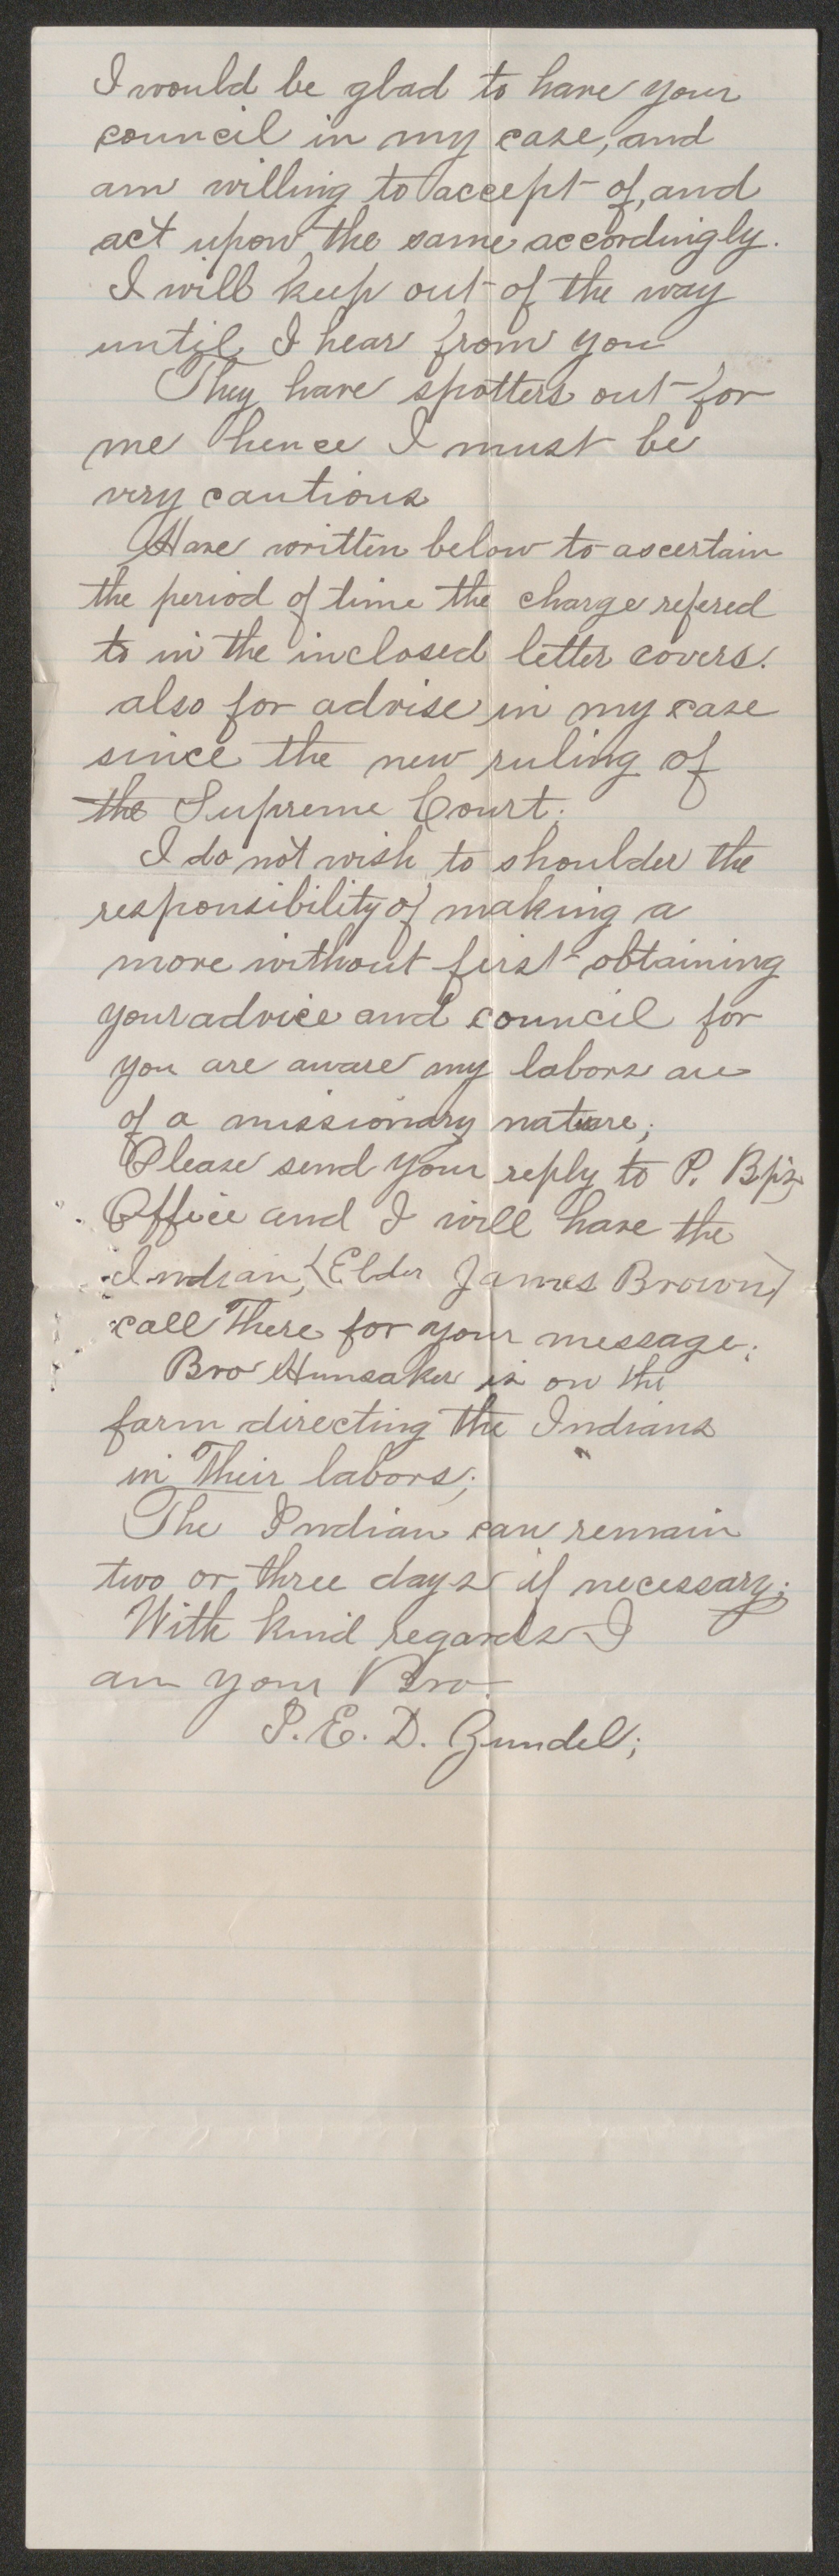 I would be glad to have your
council in my case, and
am willing to accept of, and
act upon the same accordingly.
I will keep out of the way
until I hear from you
They have spotters out for
me hence I must be
very cautious
Have written below to ascertain
the period of time the charge refered
to in the inclosed letter covers.
also for advise in my case
since the new ruling of
the Supreme Court.
I do not wish to shoulder the
responsibility of making a
move without first obtaining
your advice and council for
you are aware my labors are
of a missionary nature;
Please send your reply to P. Bp's
Office and I will have the
Indian, (Elder James Brown)
call There for your message;
Bro Hunsaker is on the
farm directing the Indians
in Their labors;
The Indian can remain
two or three days if necessary;
With kind regards I
am your Bro.
I. E. D. Zundel;